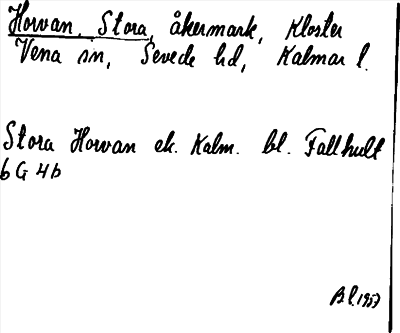 Horvan, Stora, åkermark, Kloster
Vena sn, Sevede hd, Kalmar l.
Stora Horvan ek. Kalm. bl. Fallhult
6 G 4b
Bl. 1957